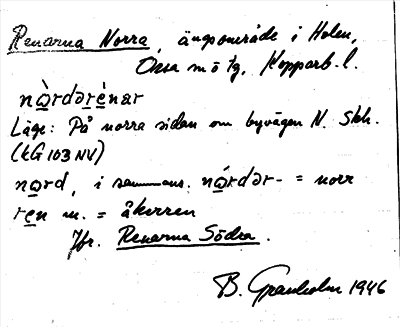 Renarna Norra, ängsområde i Holen,
Orsa sn o tg, Kopparb. l.
nò̱rdərè̱nar
Läge: På norra sidan om byvägen N. Skh.
(kG 103 NV)
no̱rd, i sammans. nó̱rdər- = norr
re̱n m. = åkerren
Jfr. Renarna Södra.
B. Granholm 1946